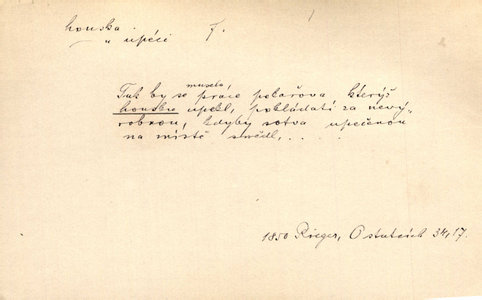 houska
" upéci f.
musela
Tak by se práce pekařova kterýž
housku upekl, pokládati za nevý-
robnou, kdyby sotva upečenou
na místě snědl, . . . .
1850 Rieger, O statcích 34, 17.